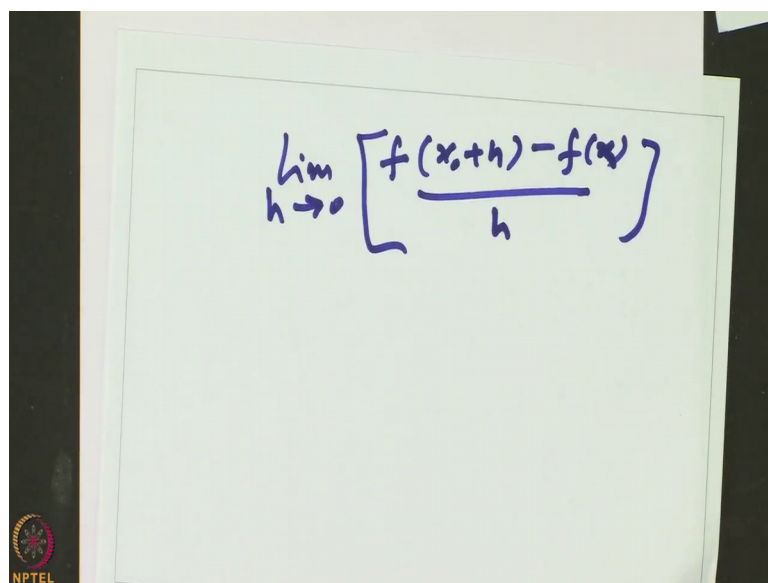 lim h→0 [ f(x₀+h) − f(x₀) / h ]
NPTEL